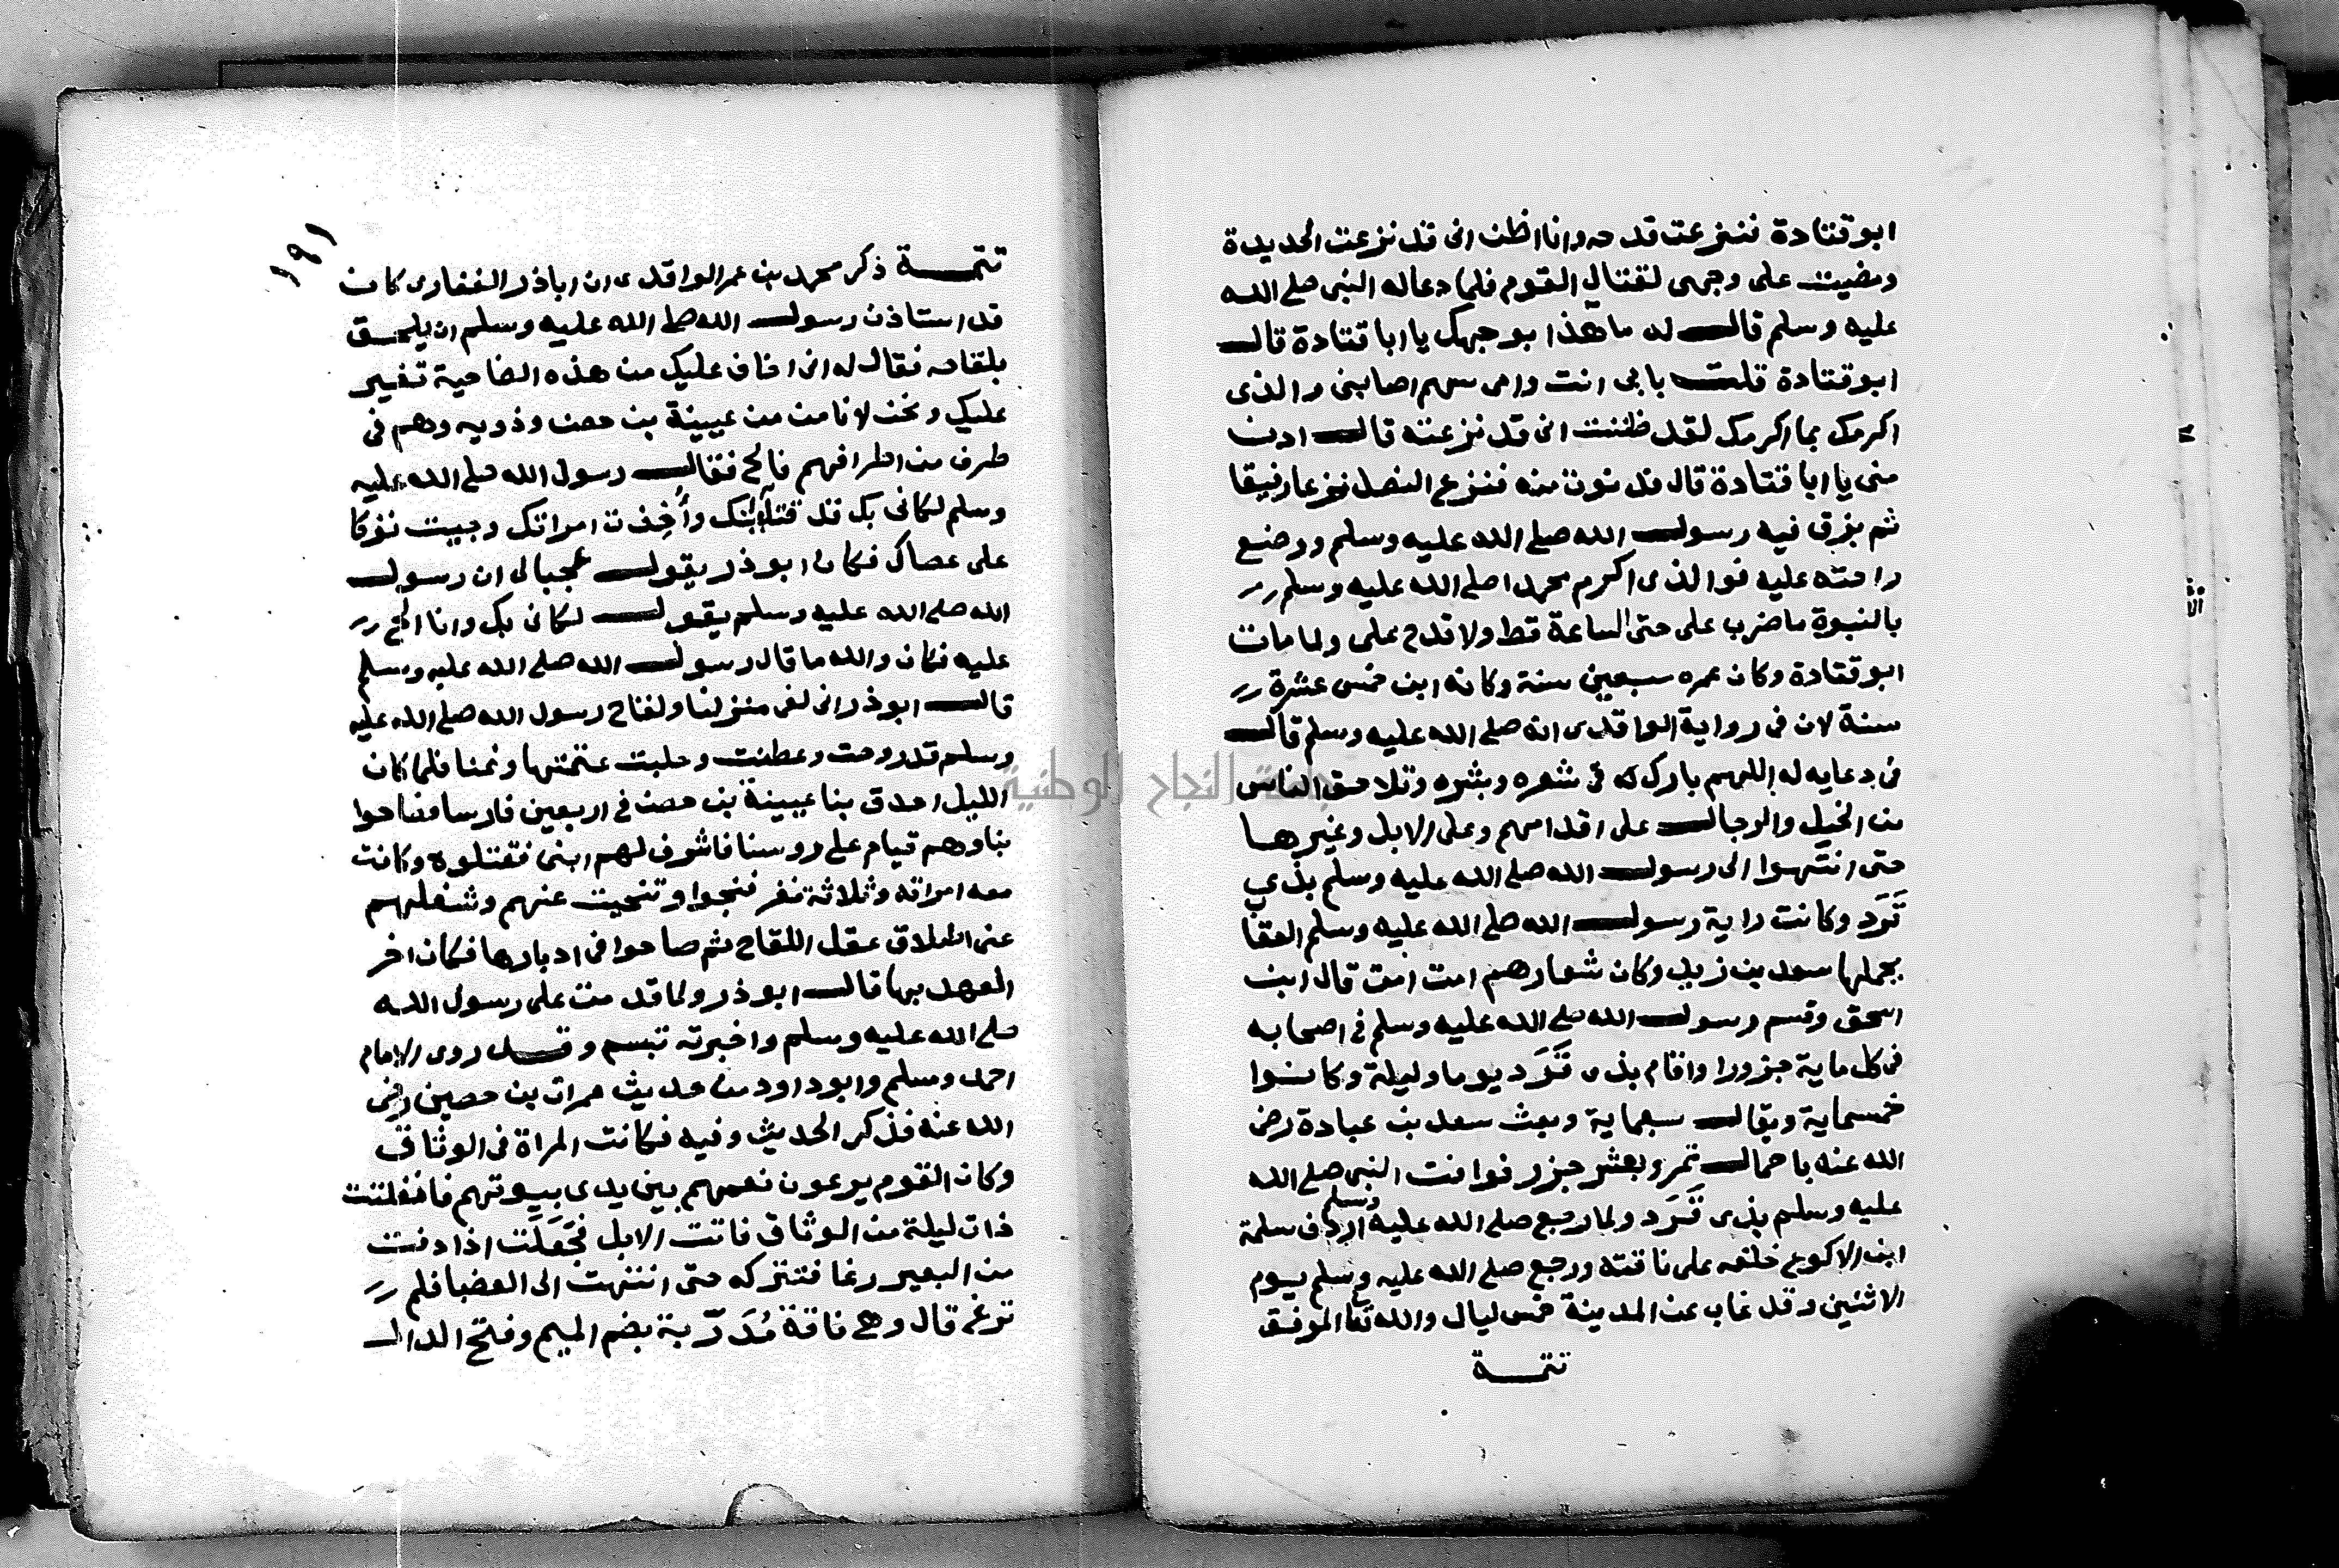 ابو قتادة فنزعت قدحه وانا اظن انى قد نزعت الحديدة
ومضيت على وجهى لقتال القوم فلما دعاله النبى صلى الله
عليه وسلم قال له ما هذا بوجهك يا ابا قتادة قال
ابو قتادة قلت بابى انت وامى سهم اصابنى والذى
اكرمك بما اكرمك لقد ظننت انى قد نزعته قال ادن
منى يا ابا قتادة قال فدنوت منه فنزع النصل نزعا رفيقا
ثم بزق فيه رسول الله صلى الله عليه وسلم ووضع
راحته عليه فوالذى اكرم محمدا صلى الله عليه وسلم
بالنبوة ما ضرب على حتى الساعة قط ولا قدح على ولما مات
ابو قتادة وكان عمره سبعين سنة وكانه ابن خمس عشرة
سنة لان فى رواية الواقدى انه صلى الله عليه وسلم قال
فى دعايه له اللهم بارك له فى شعره وبشره وتلاحق الناس
من الخيل والرجال على اقدامهم وعلى الابل وغيرها
حتى انتهوا الى رسول الله صلى الله عليه وسلم بذي
قَرَد وكانت راية رسول الله صلى الله عليه وسلم العقا
يحملها سعد بن زيد وكان شعارهم امت امت قال ابن
اسحق وقسم رسول الله صلى الله عليه وسلم فى اصحابه
فى كل ماية جزورا واقام بذى قَرَد يوما وليلة وكانوا
خمسماية ويقال سبعماية وبعث سعد بن عبادة رضى
الله عنه باحمال تمر وبعشر جزر فوافت النبى صلى الله
عليه وسلم بذى قَرَد ولما رجع صلى الله عليه وسلم اردف سلمة
ابن الاكوع خلفه على ناقته ورجع صلى الله عليه وسلم يوم
الاثنين وقد غاب عن المدينة خمس ليال والله تعا الموفق
تتمة
١٩١
تتمة ذكر محمد بن عمر الواقدى ان اباذر الغفارى كان
قد استاذن رسول الله صلى الله عليه وسلم ان يلحق
بلقاحه فقال له انى اخاف عليك من هذه الضاحية تغير
عليك ونحن لا نامن من عيينة بن حصن وذويه وهم فى
طرف من اطرافهم فالح فقال رسول الله صلى الله عليه
وسلم لكانى بك قد قتل ابنك وأُخِذت امراتك وجيت تتوكا
على عصاك فكان ابوذر يقول عجبا لى ان رسول
الله صلى الله عليه وسلم يقول لكانى بك وانا الح
عليه فكان والله ما قال رسول الله صلى الله عليه وسلم
قال ابوذر انى لفى منزلنا ولقاح رسول الله صلى الله عليه
وسلم قد روحت وعطنت وحلبت عتمتها ونمنا فلما كان
الليل احدق بنا عيينة بن حصن فى اربعين فارسا فصاحوا
بنا وهم قيام على روسنا فاشرف لهم ابنى فقتلوه وكانت
معه امراته وثلاثة نفر فنجوا وتنحيت عنهم وشغلهم
عنى اطلاق عقل اللقاح ثم صاحوا فى ادبارها فكان اخر
العهد بها قال ابوذر ولما قدمت على رسول الله
صلى الله عليه وسلم واخبرته تبسم وقد روى الامام
احمد ومسلم وابو داود من حديث عمران بن حصين رضى
الله عنه فذكر الحديث وفيه فكانت المراة فى الوثاق
وكان القوم يرعون نعمهم بين يدى بيوتهم فانفلتت
ذات ليلة من الوثاق فاتت الابل فَجَعَلَت اذا دنت
من البعير رغا فتتركه حتى انتهت الى العضبا فلم
ترغ قال وهى ناقة مُدَرّبة بضم الميم وفتح الدال
جامعة النجاح الوطنية